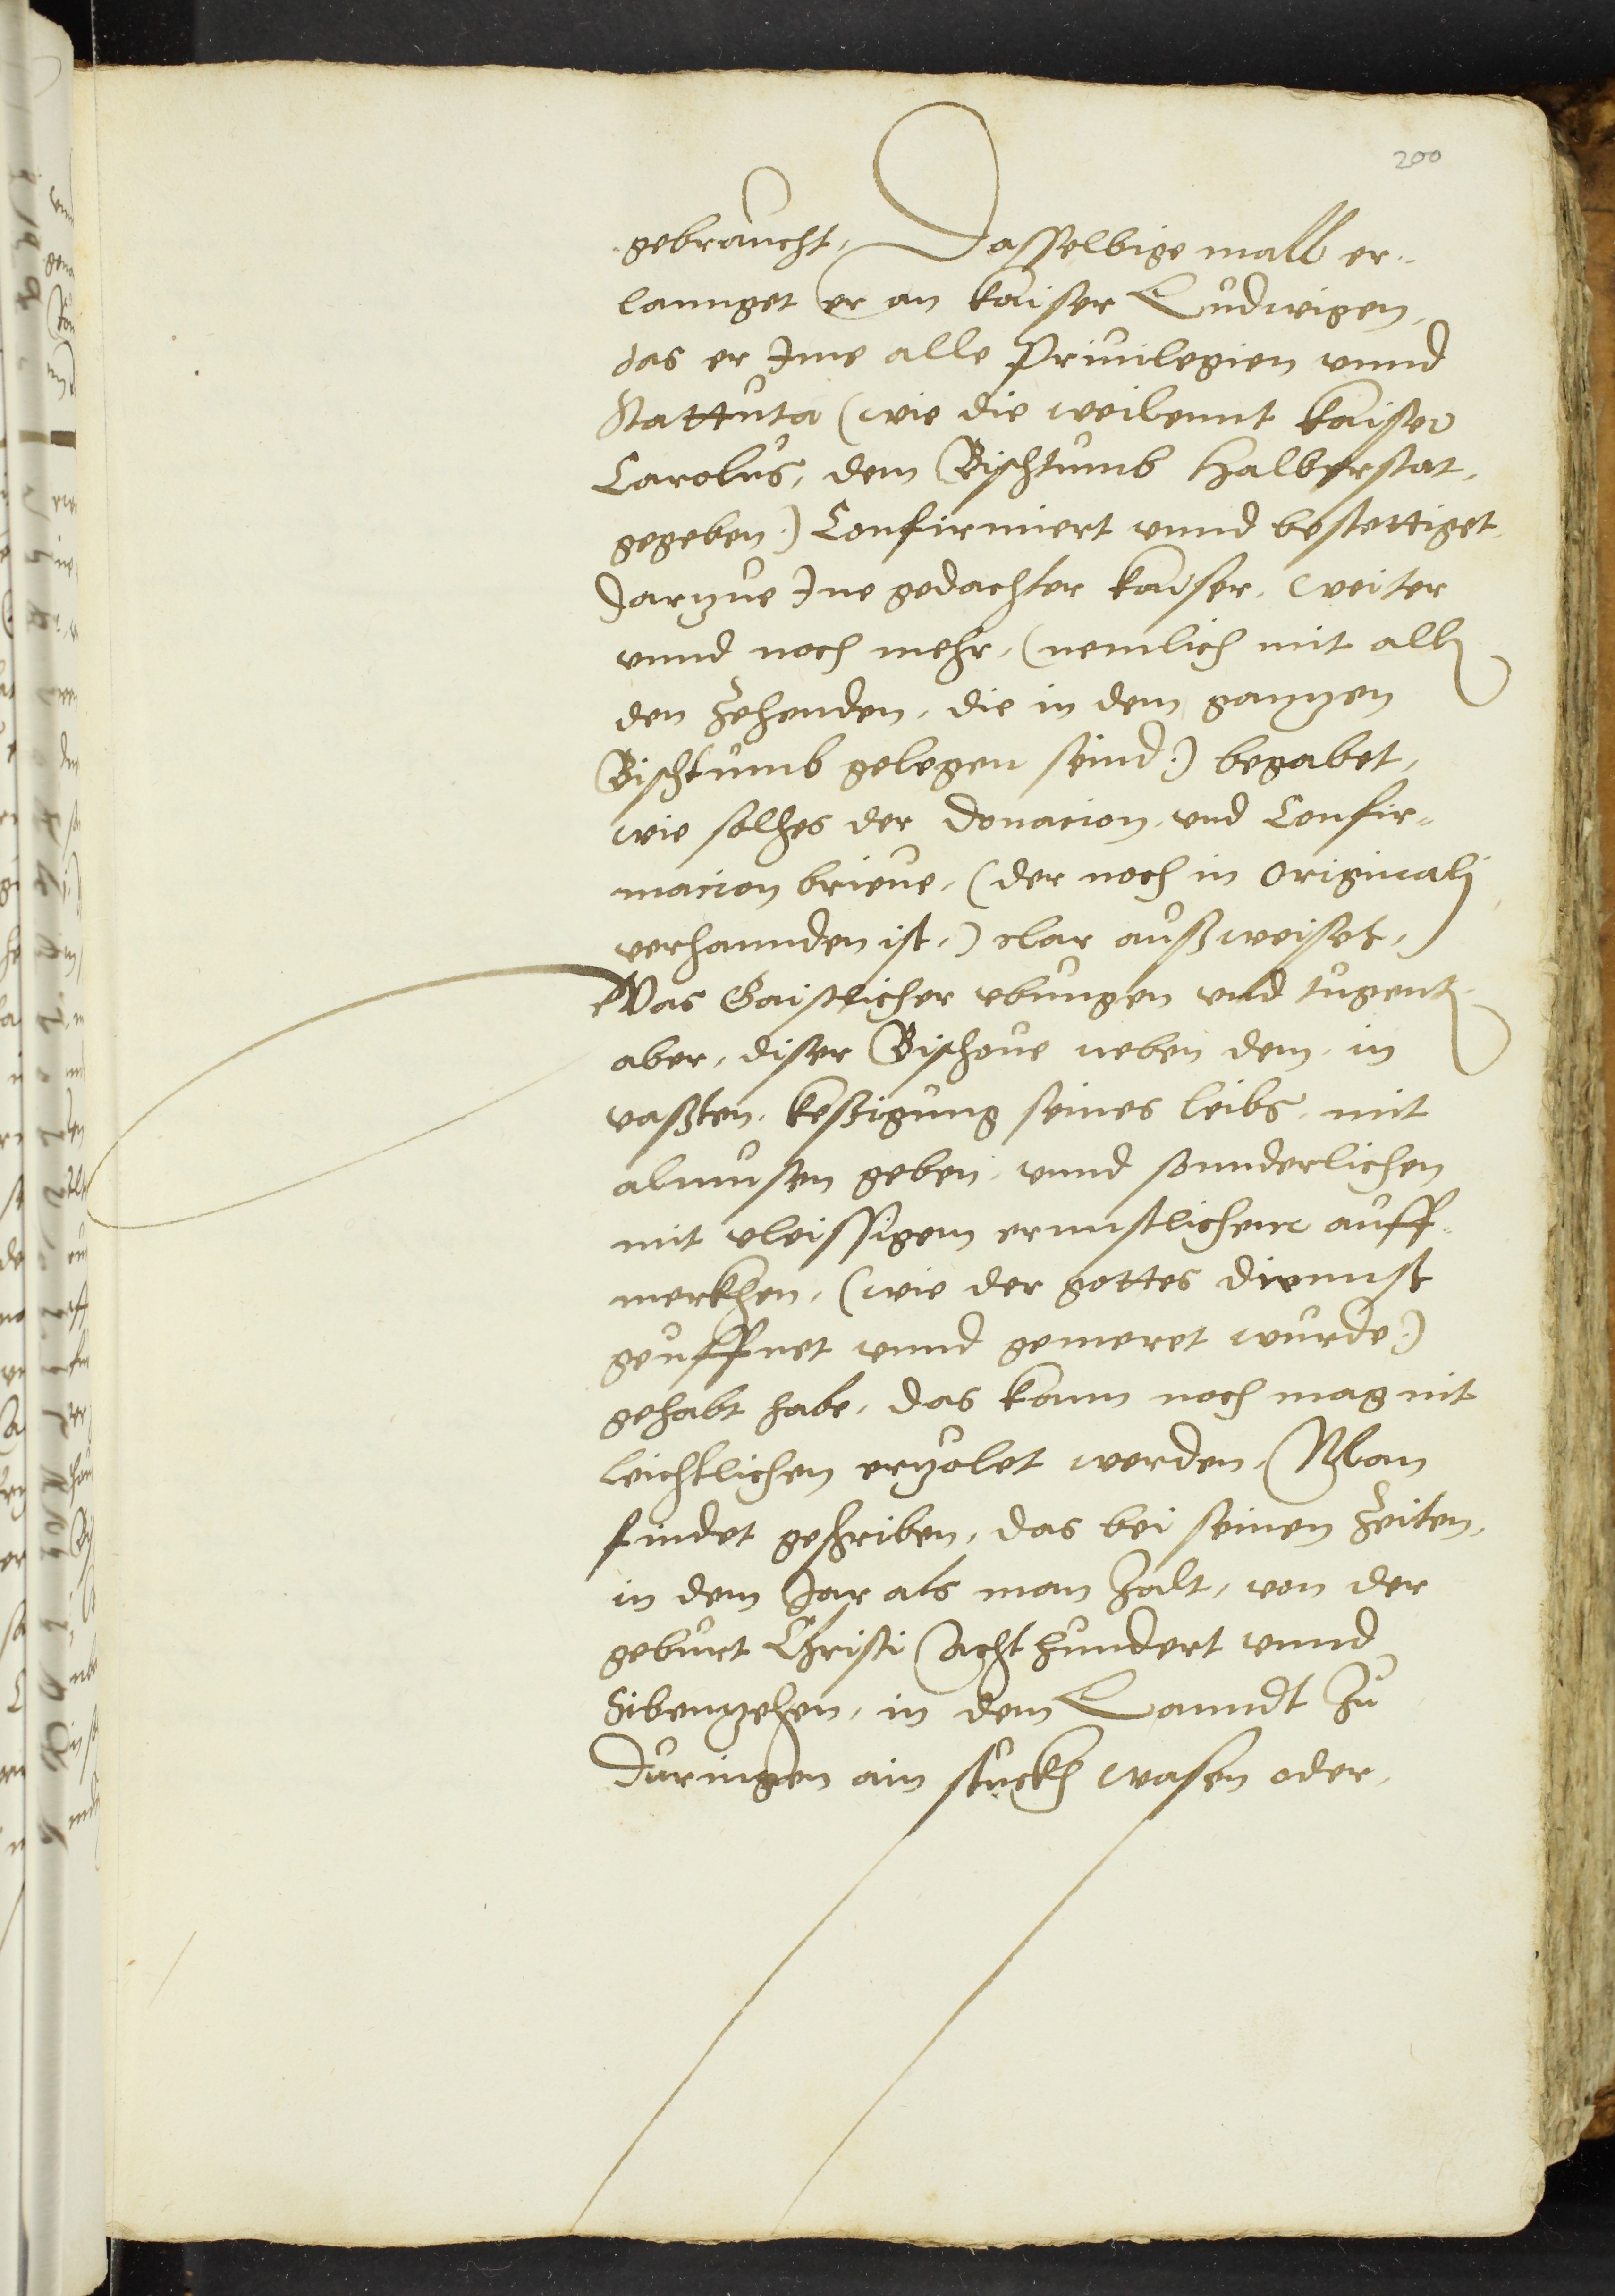 200
gebraucht, Dasselbige mall er-
lannget er an kaiser Ludwigen,
das er Ime alle Priuilegien vnnd
Stattuta (wie die weilennt kaiser
Carolus, dem Bischtumb Halberstat,
gegeben) Confirmiert vnnd bestettiget,
Darzue Ine gedachter kaiser, weiter
vnnd noch mehr, (nemlich mit all
den Zehenden, die in dem ganzen
Bischtumb gelegen seind) begabet,
wie solhes der donacion, vnd Confir-
macion brieue, (der noch in originali
verhannden ist,) clar außweiset,
Was Gaistlicher ebungen vnd tugent
aber, diser Bischoue neben dem, in
vaßten, keßigung seines leibs, mit
almusen geben, vnnd sonnderlichen
mit vleissigem ernnstlichem auff-
merkhen, (wie der gottes diennst
geuffnet vnnd gemeret wurde)
gehabt habe, das kann noch mag nit
leichtlichen erzolet werden, Man
findet geschriben, das bei seinen Zeiten,
in dem Jar als man Zalt, von der
geburt Christi Acht hundert vnnd
Sibenzehen, in dem Lanndt Zu
Duringen ain stuckh wasen oder,